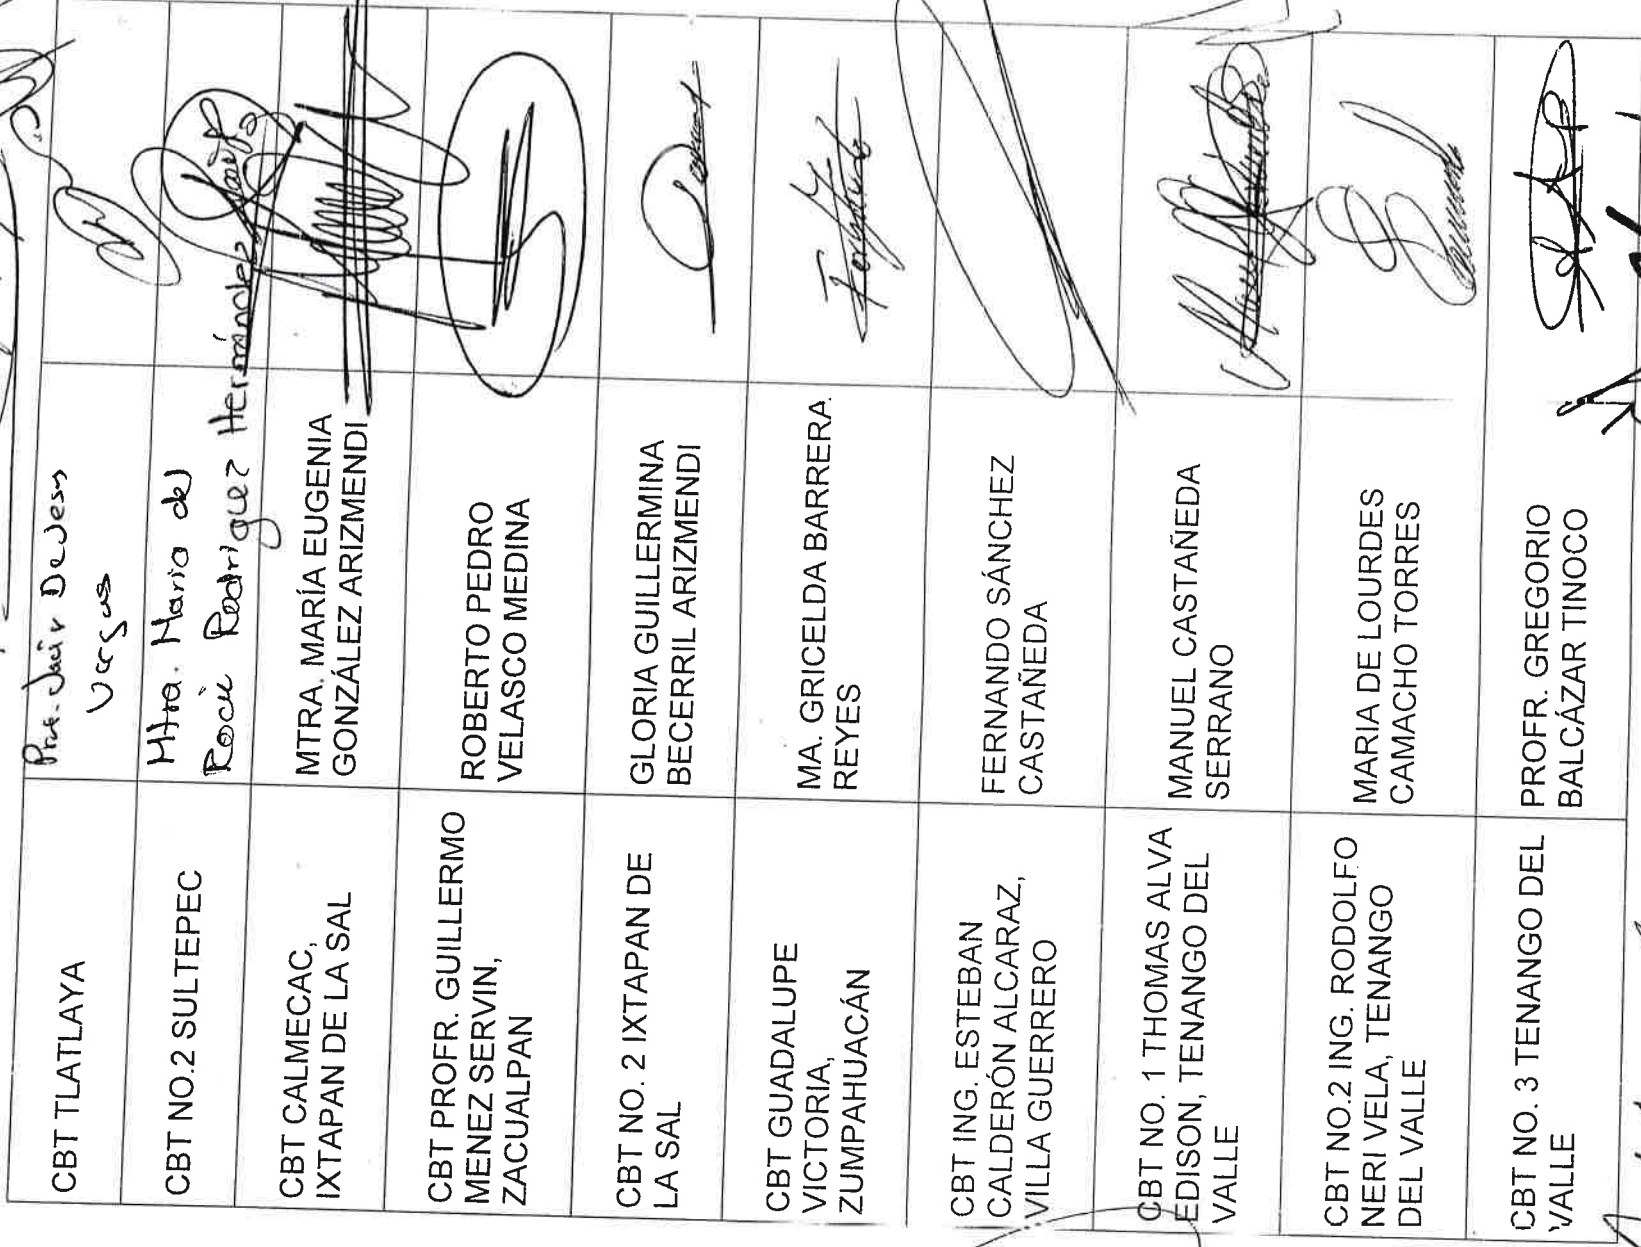 CBT TLATLAYA
Prof. Jair De Jesus
Vargas
CBT NO.2 SULTEPEC
Mtra. Maria del
Rocio Rodriguez Hernández
CBT CALMECAC,
IXTAPAN DE LA SAL
MTRA. MARÍA EUGENIA
GONZÁLEZ ARIZMENDI
CBT PROFR. GUILLERMO
MENEZ SERVIN,
ZACUALPAN
ROBERTO PEDRO
VELASCO MEDINA
CBT NO. 2 IXTAPAN DE
LA SAL
GLORIA GUILLERMINA
BECERRIL ARIZMENDI
CBT GUADALUPE
VICTORIA,
ZUMPAHUACÁN
MA. GRICELDA BARRERA
REYES
CBT ING. ESTEBAN
CALDERÓN ALCARAZ,
VILLA GUERRERO
FERNANDO SÁNCHEZ
CASTAÑEDA
CBT NO. 1 THOMAS ALVA
EDISON, TENANGO DEL
VALLE
MANUEL CASTAÑEDA
SERRANO
CBT NO.2 ING. RODOLFO
NERI VELA, TENANGO
DEL VALLE
MARIA DE LOURDES
CAMACHO TORRES
CBT NO. 3 TENANGO DEL
VALLE
PROFR. GREGORIO
BALCÁZAR TINOCO